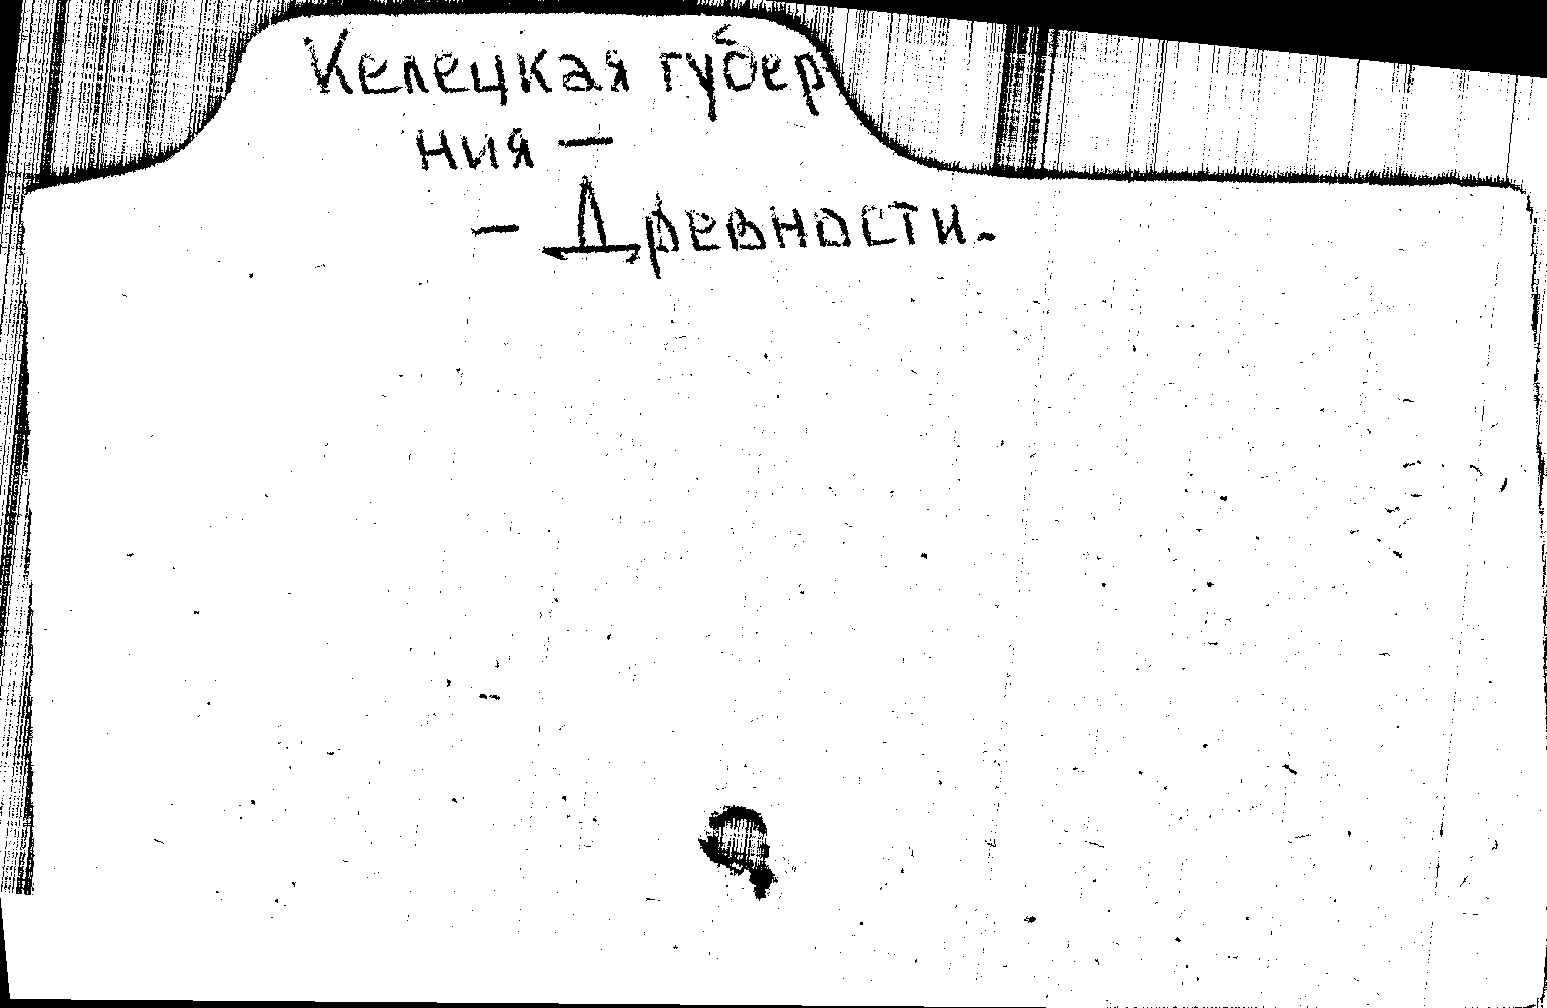 Келецкая губер
ния —
— Древности.